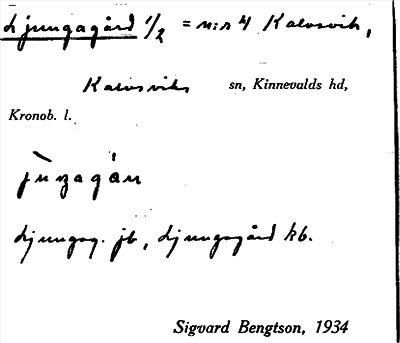 Ljungagård 1/2 = n:r 4 Kalvsvik,
Kalvsviks sn, Kinnevalds hd,
Kronob. l.
Ljungag. jb, Ljungagård kb.
Sigvard Bengtson, 1934